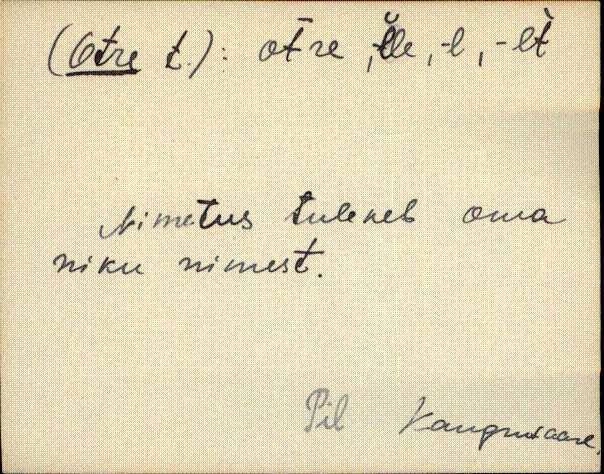 (Otre t.): otre, -le, -l, -lt
Nimetus tuleneb oma
niku nimest.
Pil Kangruaare.